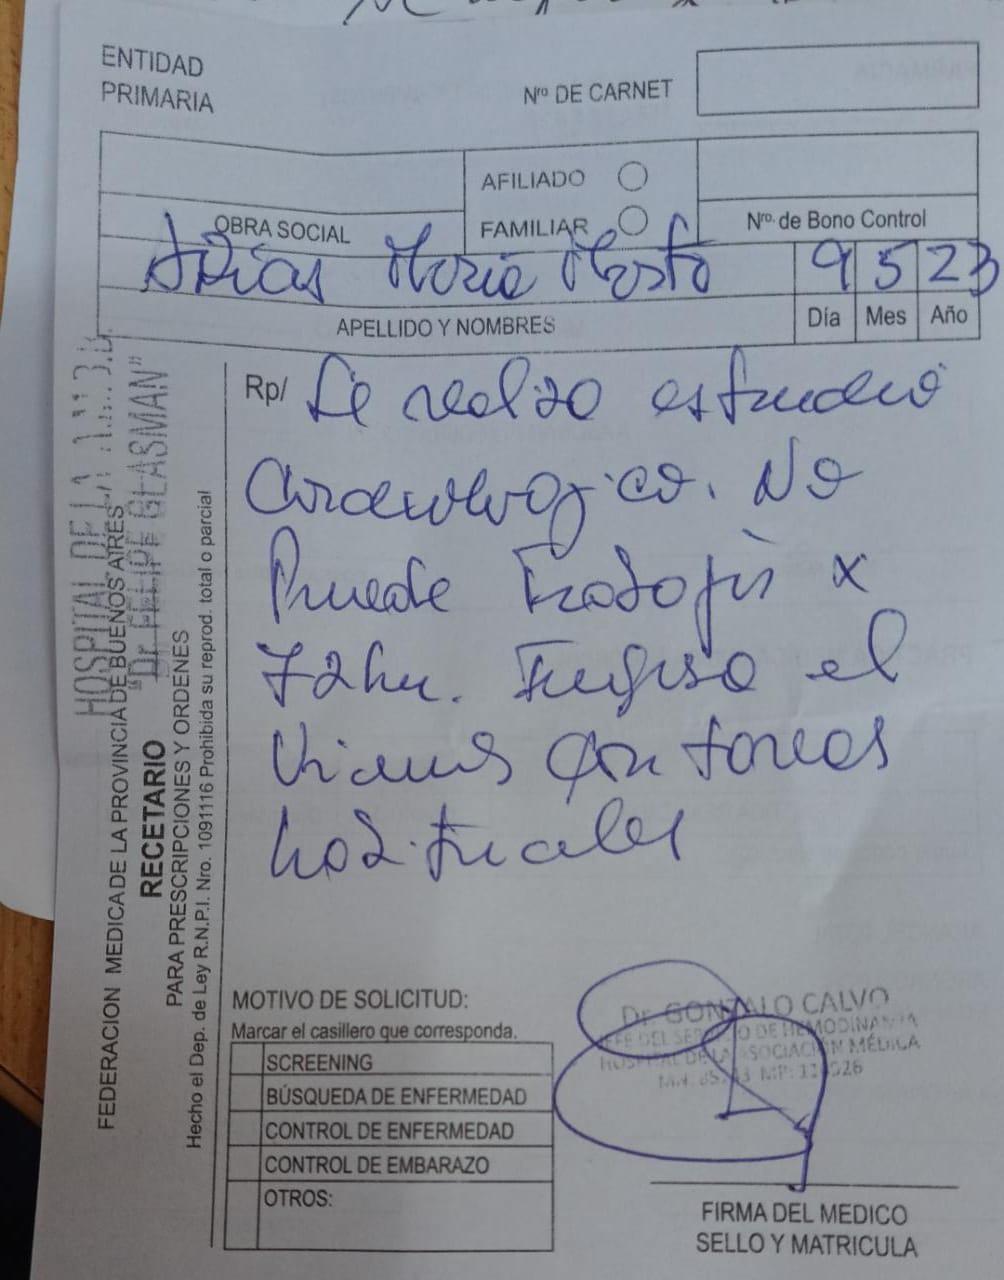 ENTIDAD
PRIMARIA
Nro DE CARNET
AFILIADO
FAMILIAR
OBRA SOCIAL
Nro. de Bono Control
Arias Maria Marta 9 5 23
APELLIDO Y NOMBRES
Día Mes Año
HOSPITAL DE LA
"Dr. FELIPE GLASMAN"
FEDERACION MEDICA DE LA PROVINCIA DE BUENOS AIRES
RECETARIO
PARA PRESCRIPCIONES Y ORDENES
Hecho el Dep. de Ley R.N.P.I. Nro. 1091116 Prohibida su reprod. total o parcial
Rp/ Se realizo estudio
Cardiologico. No
Puede Trabajar x
72hs. Ingreso el
Viernes con tareas
habituales
MOTIVO DE SOLICITUD:
Marcar el casillero que corresponda.
SCREENING
BÚSQUEDA DE ENFERMEDAD
CONTROL DE ENFERMEDAD
CONTROL DE EMBARAZO
OTROS:
Dr. GONZALO CALVO
JEFE DEL SERVICIO DE HEMODINAMIA
HOSPITAL DE LA ASOCIACIÓN MÉDICA
FIRMA DEL MEDICO
SELLO Y MATRICULA